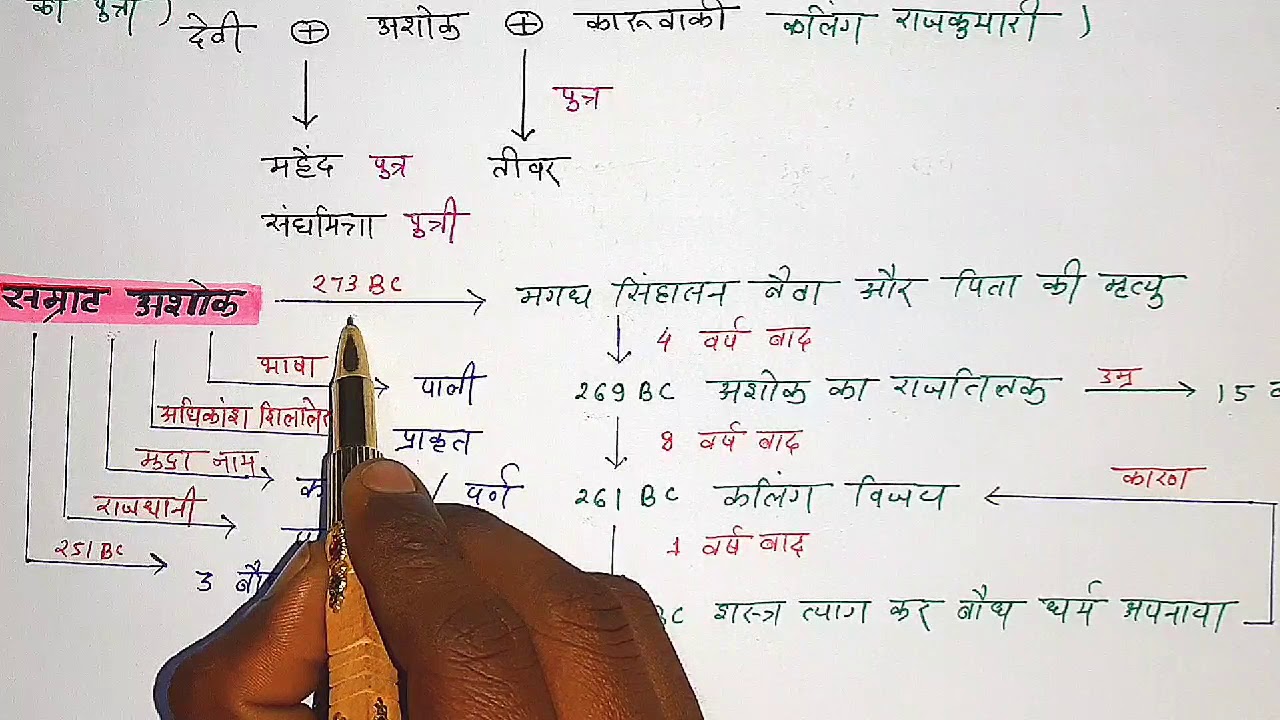 की पुत्री )
देवी ⊕ अशोक ⊕ कारूवाकी कलिंग राजकुमारी )
पुत्र
महेंद पुत्र तीवर
संघमित्रा पुत्री
सम्राट अशोक 273 BC मगध सिंहासन बैठा और पिता की मृत्यु
4 वर्ष बाद
भाषा पाली 269 BC अशोक का राजतिलक उम्र 15
अधिकांश प्राकृत 8 वर्ष बाद
मुद्रा नाम 261 BC कलिंग विजय कारण
राजधानी 1 वर्ष बाद
251 BC 3
BC शस्त्र त्याग कर बौध धर्म अपनाया